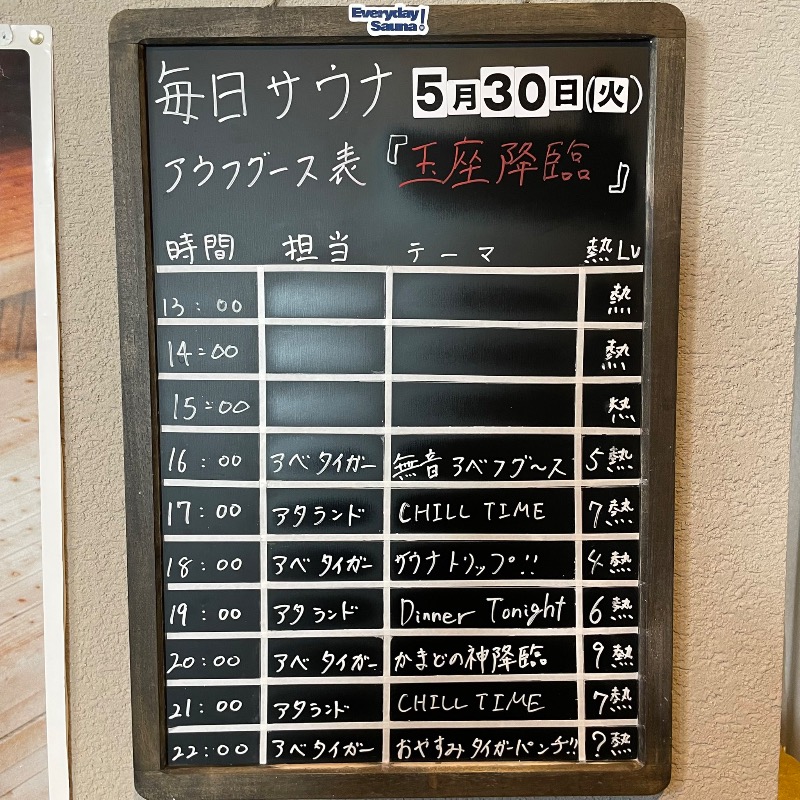 Everyday
Sauna!
毎日サウナ 5月30日(火)
アウフグース表『玉座降臨』
時間 担当 テーマ 熱Lv
13:00 熱
14:00 熱
15:00 熱
16:00 アベタイガー 無音アベフグ〜ス 5熱
17:00 アタランド CHILL TIME 7熱
18:00 アベタイガー サウナトリップ!! 4熱
19:00 アタランド Dinner Tonight 6熱
20:00 アベタイガー かまどの神降臨 9熱
21:00 アタランド CHILL TIME 7熱
22:00 アベタイガー おやすみタイガーパンチ!! ?熱